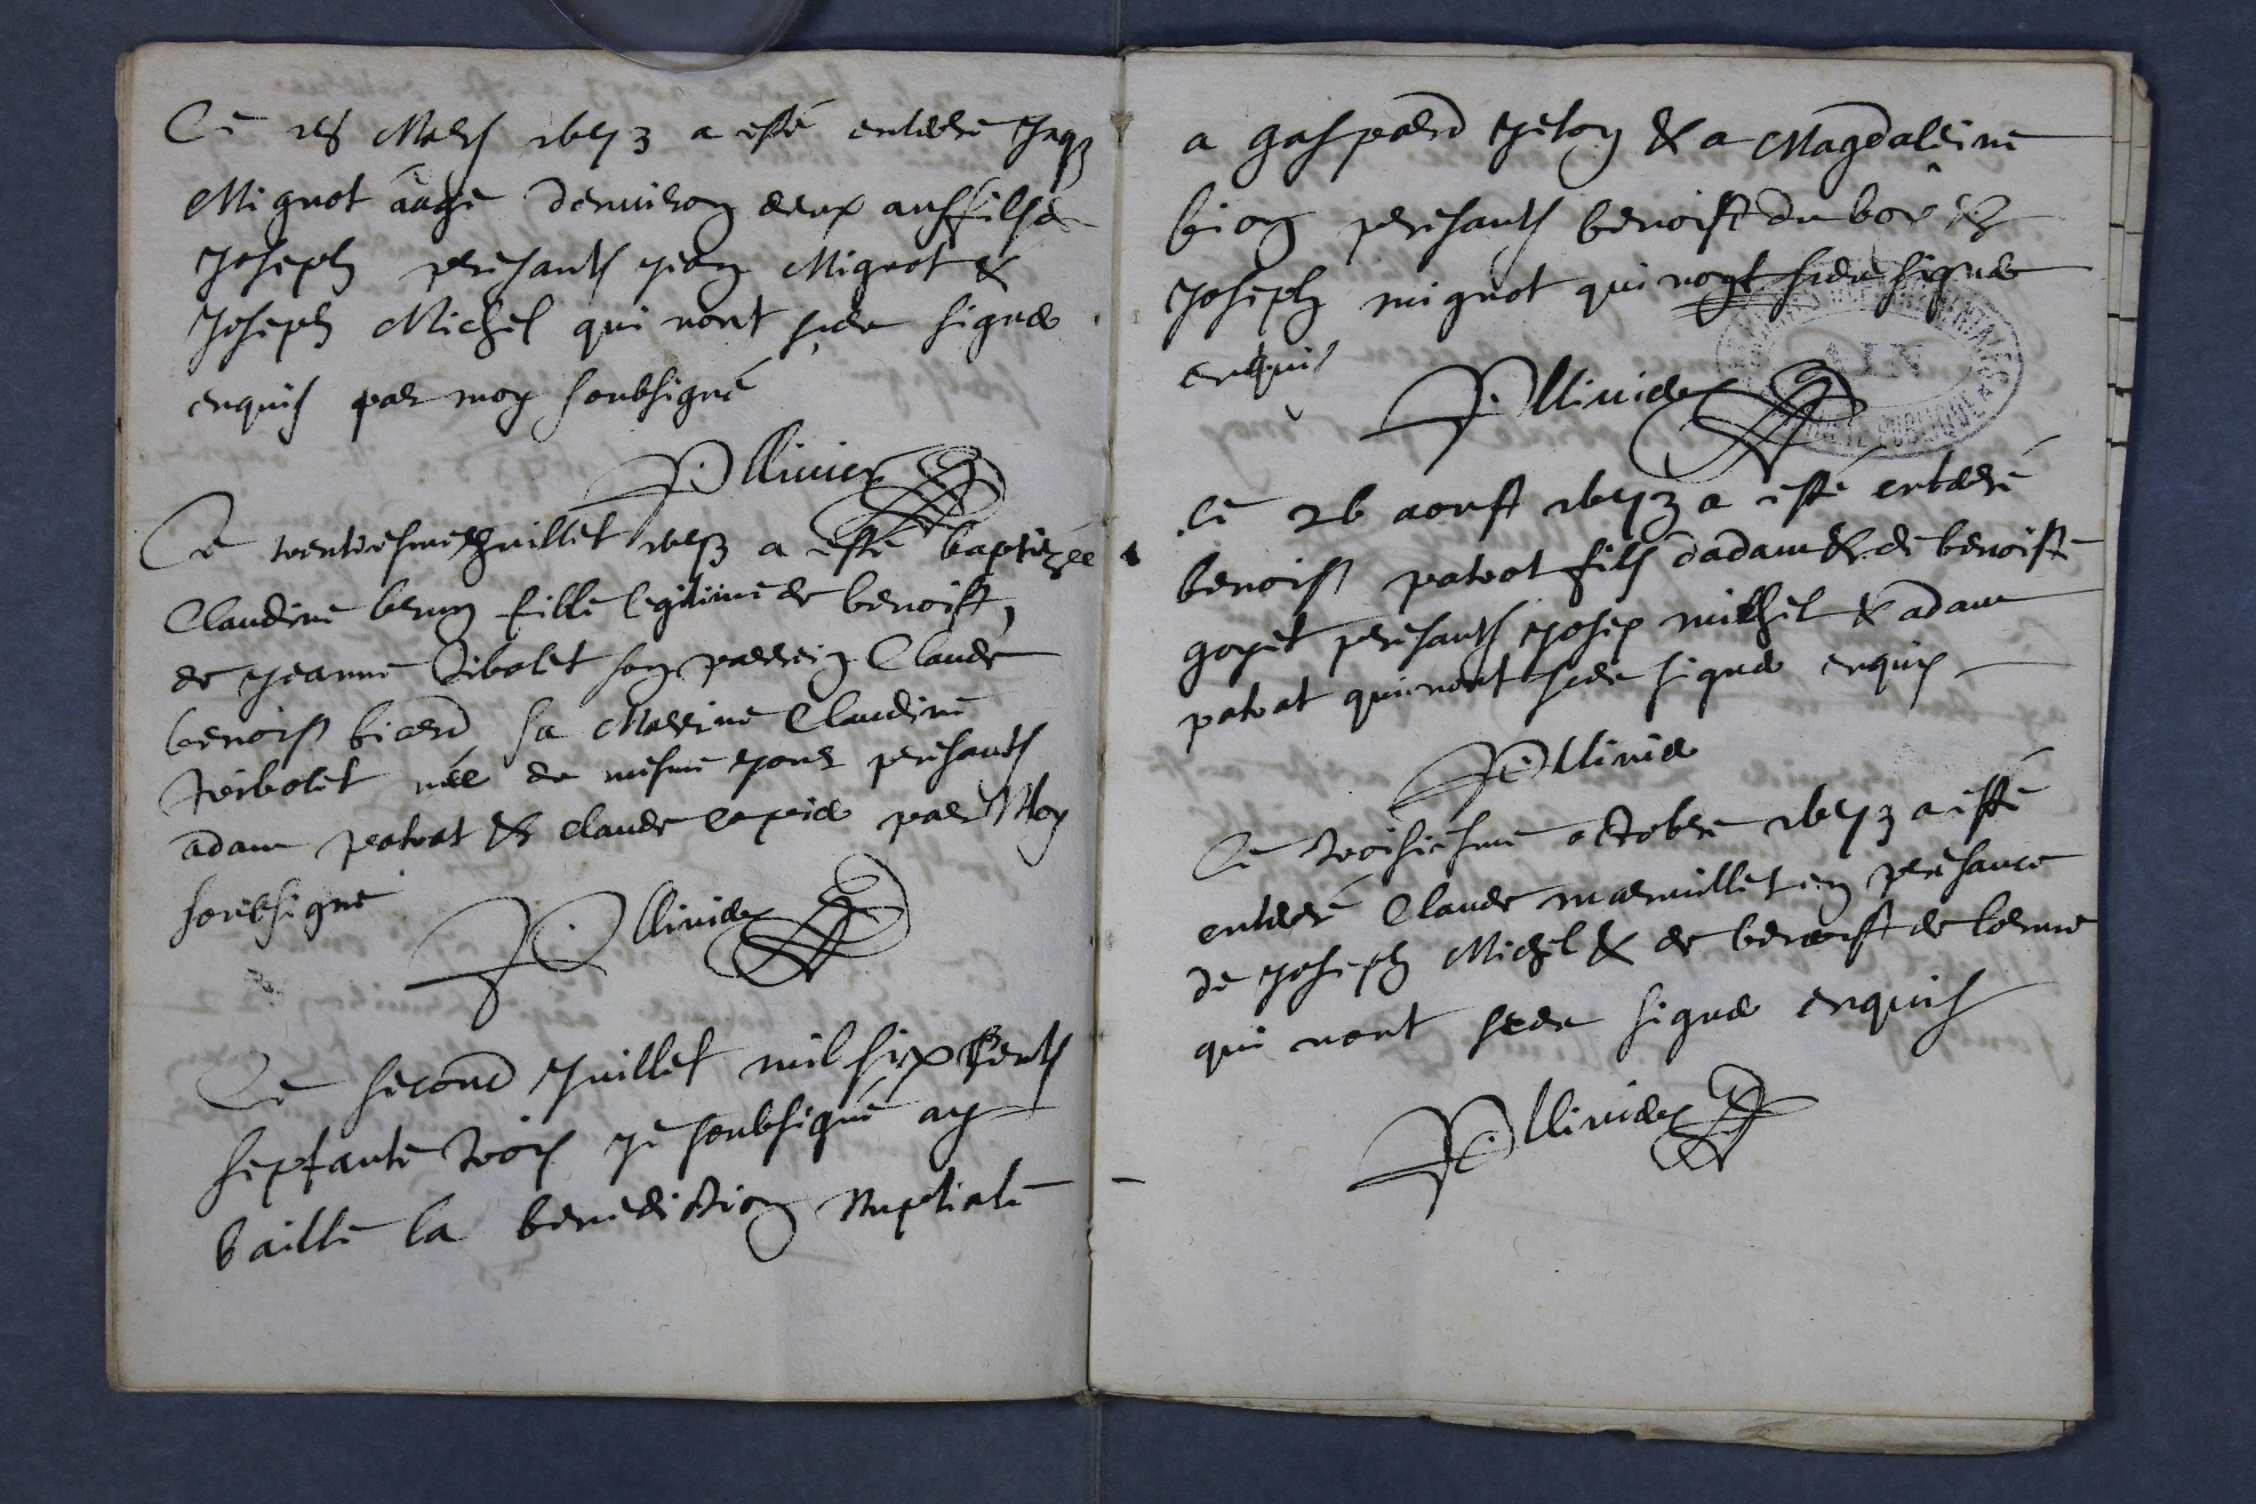 Ce 18 Mars 1673 a esté enterre Jaqz
Mignot aage denuiron deux ans fils a
Joseph presants Jean Mignot &
Joseph Michel qui nont sceu signer
enquis par moy soubsigné
P. Ollivier
Ce trentiesme Juillet 1673 a esté baptizée
Claudine brun fille legitime de benoist,
de Jeanne Tibolet son parrein Claude
benoist biard sa Marrine Claudine
Tribolet née de mesme jour presants
adam patrat & Claude par Moy
soubsigne
P. Ollivier
Ce second Juillet mil six cents
septante trois je soubsigné ay
baille la benediction Nuptiale
a gaspard Jeton & a Magdaleine
bion presants benoist du bo &
Joseph mignot qui nont sceu signer
enquis
P. Ollivier
ARCHIVES DEPARTEMENTALES
AIN
PROPRIETE PUBLIQUE
Ce 26 aoust 1673 a esté enterré
benoist patrat fils dadam & de benoiste
goyet presants Josep michel & adam
patrat qui nont sceu signer enquis
P. Ollivier
Ce troisiesme octobre 1673 a esté
enterré Claude marmillet en presance
de Joseph Michel & de benoist de lorme
qui nont sceu signer enquis
P. Ollivier